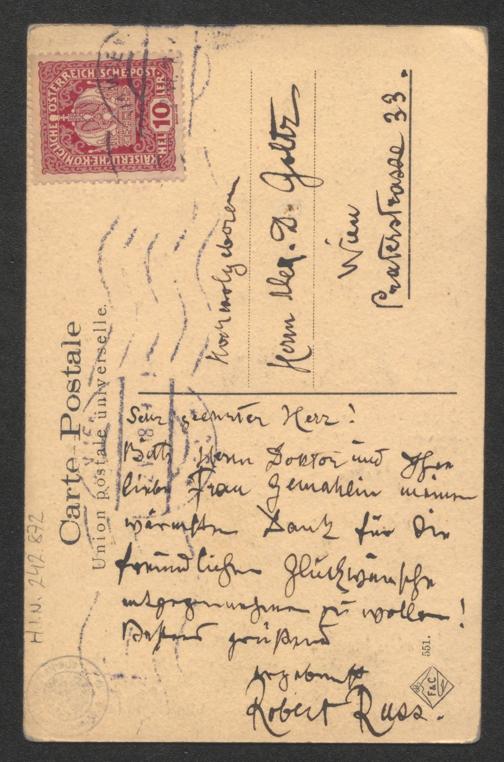 Carte Postale
Union Postale universelle.
KAISERLICHE KÖNIGLICHE ÖSTERREICHISCHE POST
10 HELLER
Hochwolgeboren
Herrn Alex. D. Goltz
Wien
Praterstrasse 33.
Sehr geehrter Herr!
Bitte Herrn Doktor und Ihre
liebe Frau Gemahlin meinen
wärmsten Dank für die
freundlichen Glückwünsche
entgegennehmen zu wollen!
Bestens grüßend
ergebenst
Robert Russ.
551.
F&C
H.I.N. 242 872